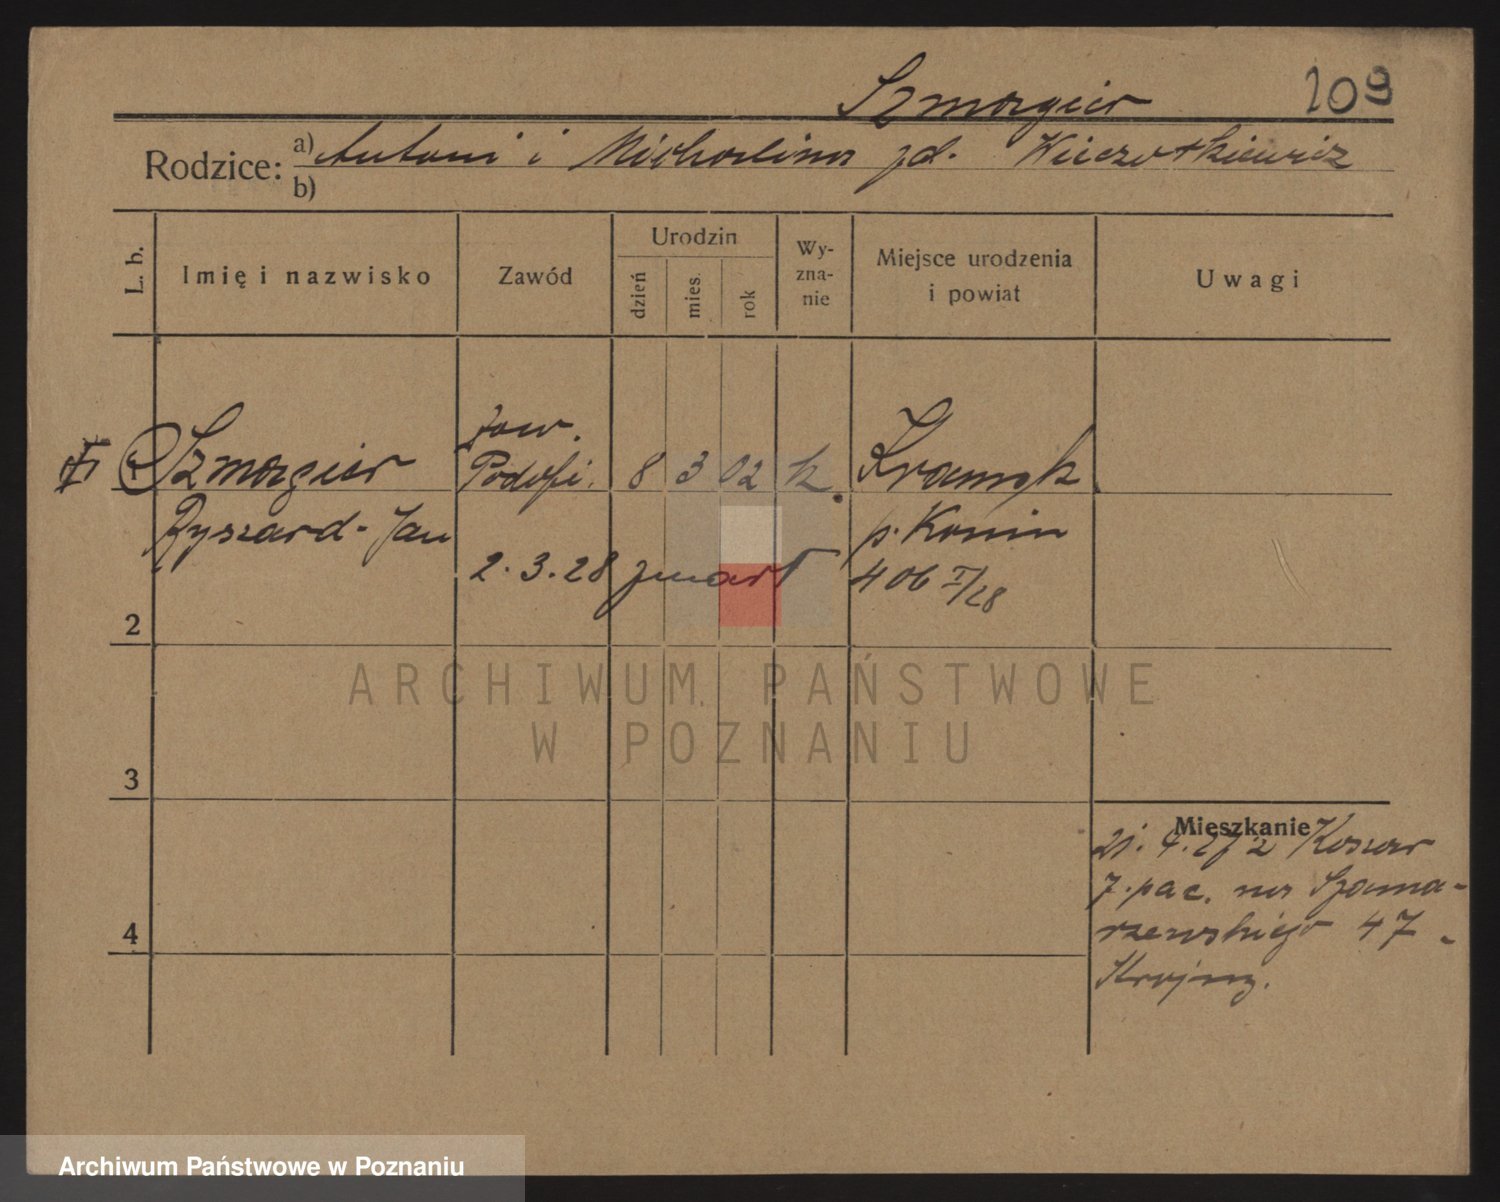 Szmagier 209
Rodzice: a) Antoni i Michalina zd.
b)
L. b.
Imię i nazwisko
Zawód
Urodzin
dzień
mies.
rok
Wy-
zna-
nie
Miejsce urodzenia
i powiat
Uwagi
1 Szmagier
Ryszard-Jan
zaw.
Podofi.
8 3 02 k.
p. Konin
2.3.28 zmarł
406 I/28
2
3
4
Mieszkanie
7. pac. na Szama-
rzewskiego 47.
ARCHIWUM PAŃSTWOWE
W POZNANIU
Archiwum Państwowe w Poznaniu